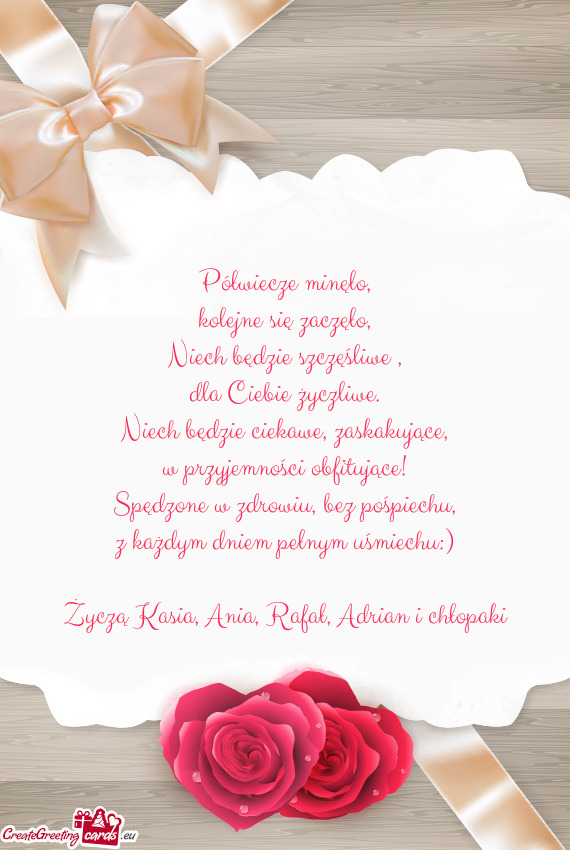 Półwiecze minęło,
kolejne się zaczęło,
Niech będzie szczęśliwe ,
dla Ciebie życzliwe.
Niech będzie ciekawe, zaskakujące,
w przyjemności obfitujące!
Spędzone w zdrowiu, bez pośpiechu,
z każdym dniem pełnym uśmiechu:)
Życzą Kasia, Ania, Rafał, Adrian i chłopaki
CreateGreeting cards .eu